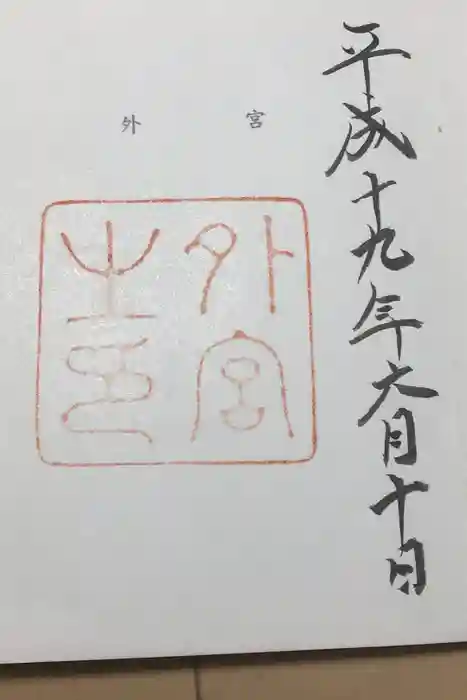 平成十九年六月十日
外 宮
外宮
之印